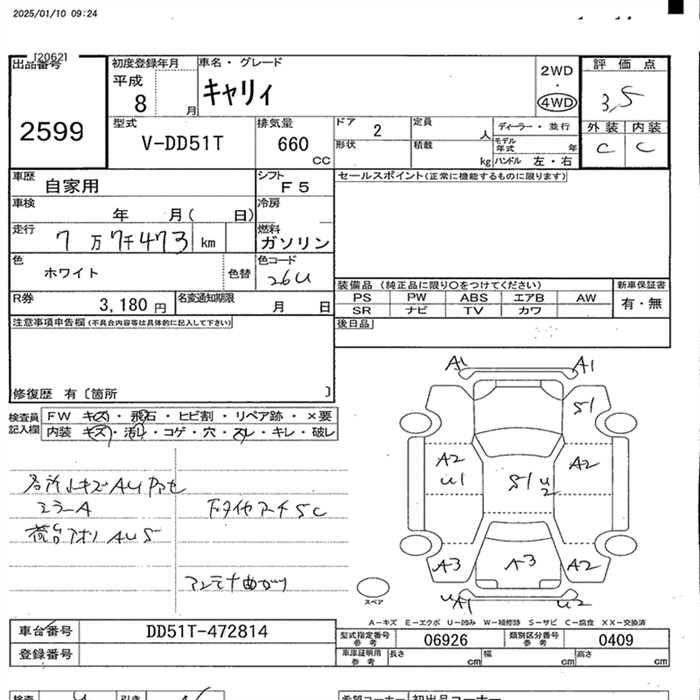 2025/01/10 09:24
[2062]
出品番号 初度登録年月 車名・グレード 2WD 評価点
2599 平成 8 月 キャリィ ・ 4WD 3,5
外装 内装
C C
型式 V-DD51T 排気量 660 CC ドア 2 定員 人 ディーラー・並行
形状 積載 kg モデル年式 年
ハンドル 左・右
車歴 自家用 シフト F5 セールスポイント(正常に機能するものに限ります)
車検 年 月( 日) 冷房
走行 7万7千473 km 燃料 ガソリン
色 ホワイト 色替 色コード 26U
装備品 (純正品に限り〇をつけてください) 新車保証書
PS PW ABS エアB AW 有・無
SR ナビ TV カワ
R券 3,180 円 名変通知期限 月 日
後日品
注意事項申告欄(不具合内容等は具体的に記入して下さい)
修復歴 有〔箇所 〕
検査員記入欄 FW キズ・飛石・ヒビ割・リペア跡・×要
内装 キズ・汚レ・コゲ・穴・スレ・キレ・破レ
ミラーA
荷台アオリ AU5
アンテナ曲がり
A1 A1
S1
A2 A2
U1 S1 U2
A3 A3 A2
UA1 U2
スペア
A-キズ E-エクボ U-凹み W-補修跡 S-サビ C-腐食 XX-交換済
車台番号 DD51T-472814 型式指定番号 参考 06926 類別区分番号 参考 0409
登録番号 車庫証明用 参考 長さ cm 幅 cm 高さ cm